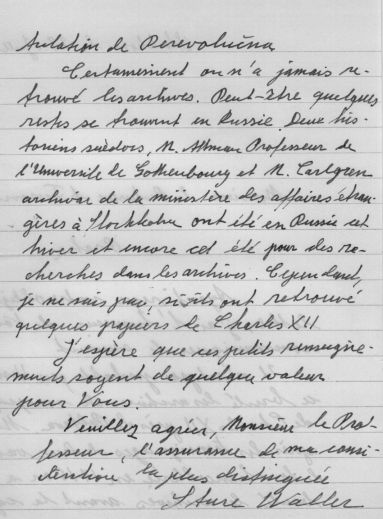 tulation de Perevoločna
Certainement on n'a jamais re-
trouvé les archives. Peut-être quelques
restes se trouvent en Russie. Deux his-
toriens suédois, M. Attman Professeur de
l'Université de Gothenbourg et M. Carlgren
archivar de la ministère des affaires étran-
gères à Stockholm ont été en Russie cet
hiver et encore cet été pour des re-
cherches dans les archives. Cependant,
je ne sais pas, si ils ont retrouvé
quelques papiers le Charles XII
J'espère que ces petits renseigne-
ments soyent de quelque valeur
pour Vous.
Veuillez agréer, Monsieur le Pro-
fesseur, l'assurance de ma consi-
dération la plus distinguée
Sture Waller